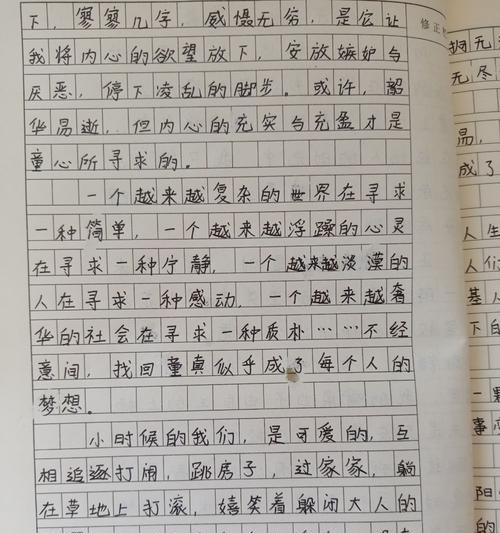 下，寥寥几字，威慑无穷，是它让
修正
我将内心的欲望放下，安放嫉妒与
厌恶，停下凌乱的脚步。或许，韶
华易逝，但内心的充实与充盈才是
童心所寻求的。
一个越来越复杂的世界在寻求
一种简单，一个越来越浮躁的心灵
在寻求一种宁静，一个越来越淡漠的
人在寻求一种感动，一个越来越奢
华的社会在寻求一种质朴……不经
意间，找回童真似乎成了每个人的
梦想。
小时候的我们，是可爱的，互
相追逐打闹，跳房子，过家家，躺
在草地上打滚，嬉笑着躲闭大人的
无尽
易，
成了
人生
人们
基人
下的
一颗
事
阳
的